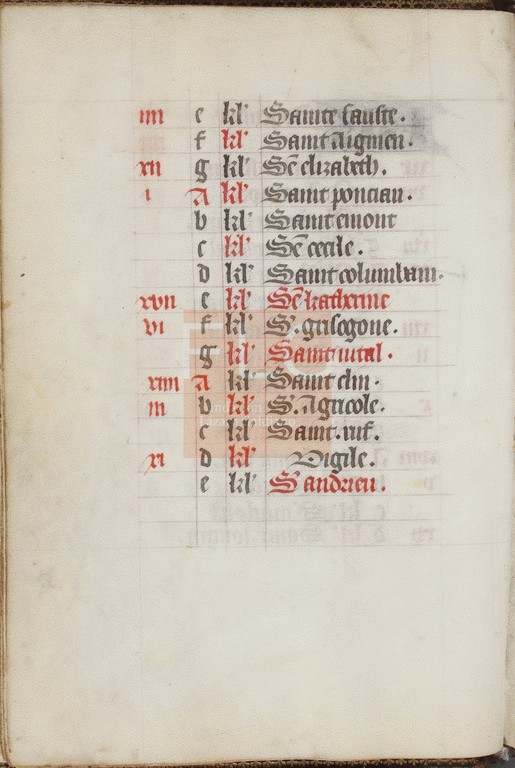 iiii e kl' Sainte fauste.
f kl' Saint Aignien.
xii g kl' Sē elizabeth.
i A kl' Saint poncian.
b kl' Saint emont
c kl' Sē cecile.
d kl' Saint columbam.
xvii e kl' Sē katherine
vi f kl' S. grisogone.
g kl' Saint vital.
xiiii A kl' Saint elin.
iii b kl' S. Agricole.
c kl' Saint. ruf.
xi d kl' Vigile.
e kl' S andrieu.